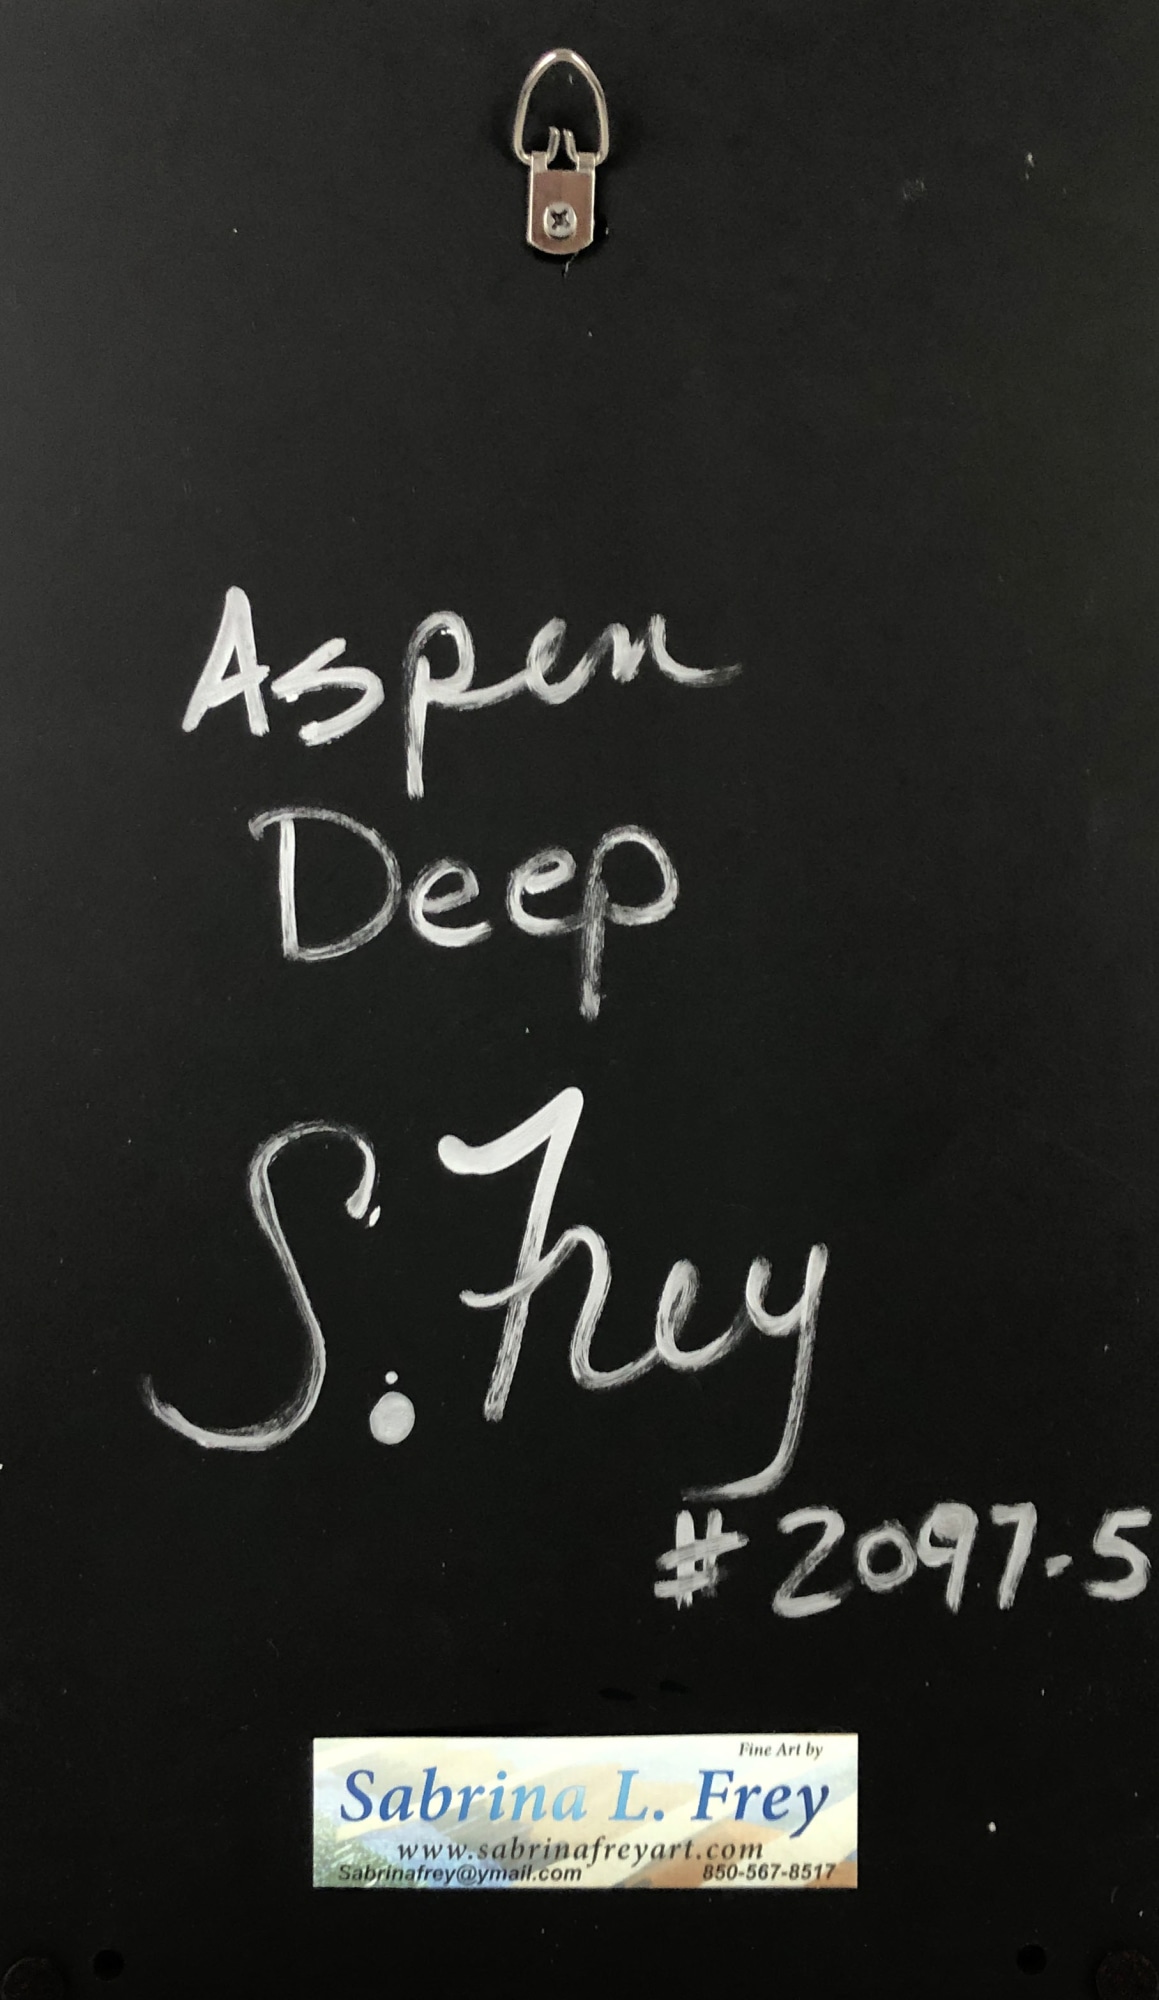 Aspen
Deep
S. Frey
#2097-5
Fine Art by
Sabrina L. Frey
www.sabrinafreyart.com
Sabrinafrey@ymail.com 850-567-8517